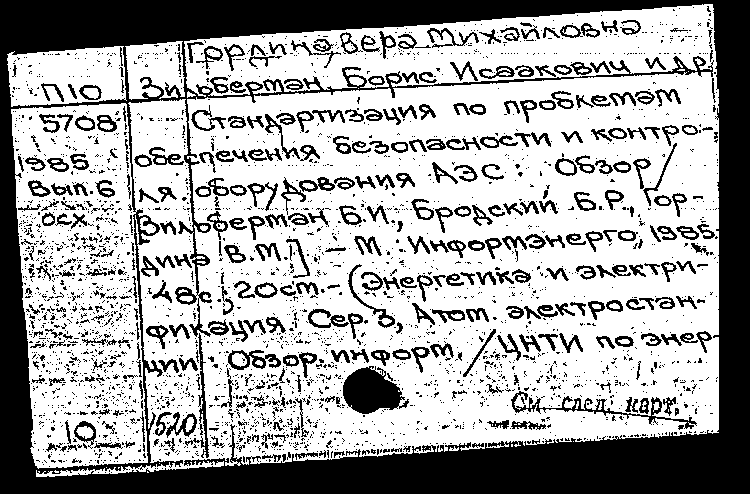 Гордина, Вера Михайловна
П10 Зильберман, Борис Исаакович и др
5708 Стандартизация по пробкемам
1985 обеспечения безопасности и контро-
Вып.6 ля оборудования АЭС: Обзор /
осх [Зильберман Б.И., Бродский Б.Р., Гор-
дина В.М.] – М.: Информэнерго, 1985.
48с., 20см. – (Энергетика и электри-
фикация. Сер. 3, Атом. электростан-
ции: Обзор. информ. / ЦНТИ по энер-
См. след. карт.
10 1520